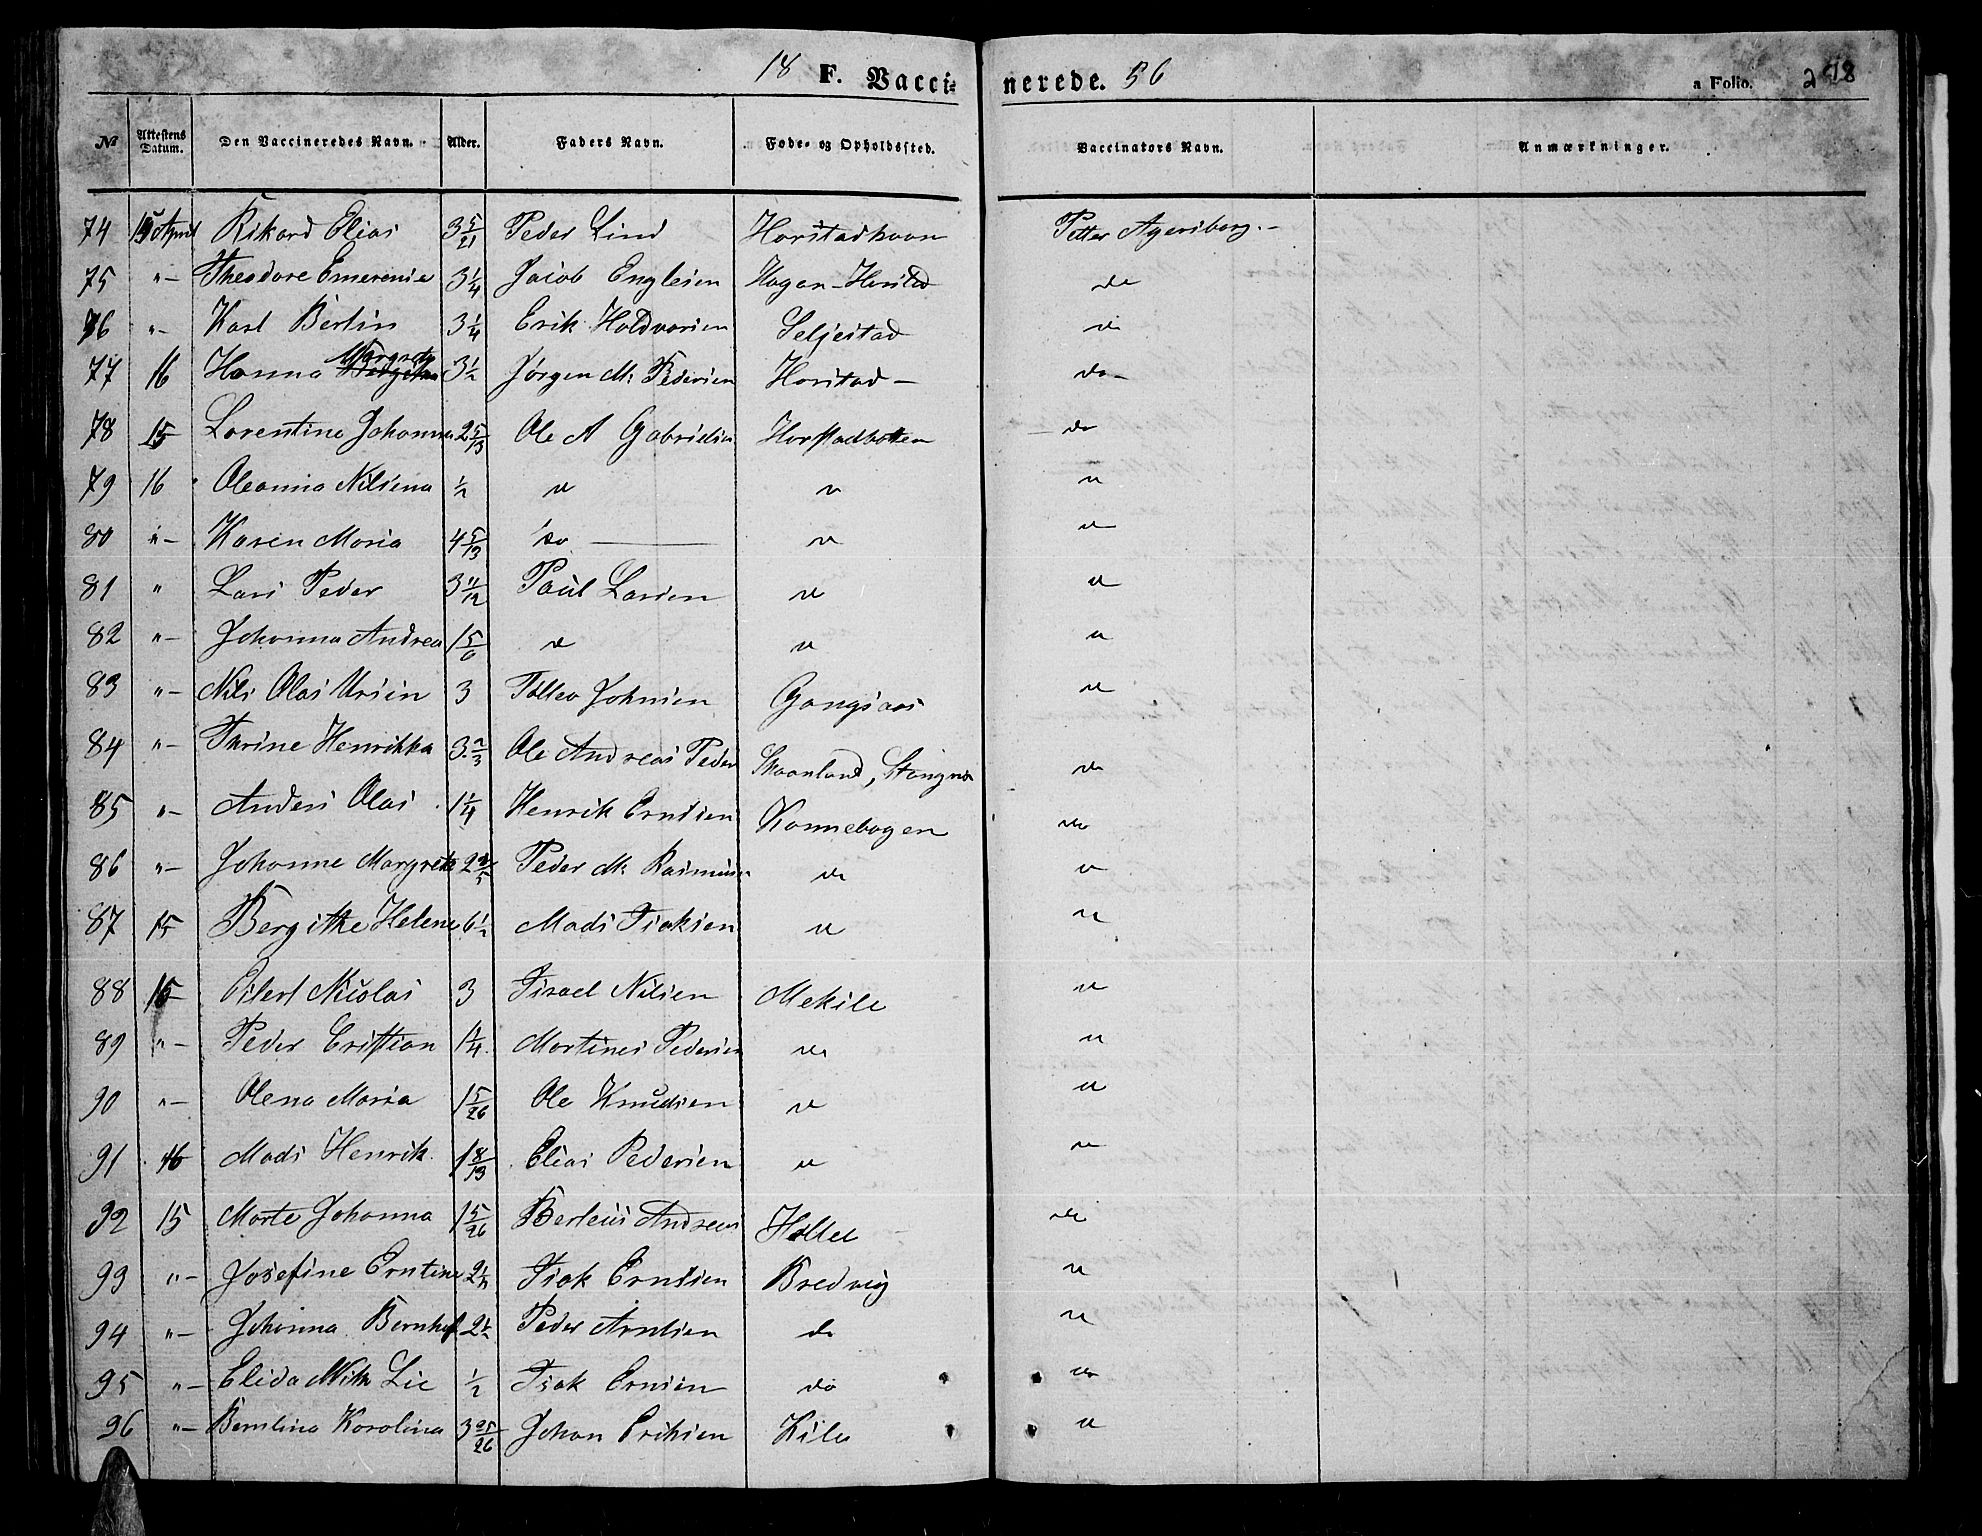 18 F. Vacci- nerede. 56 a Folio. 298
No Attestens Datum. Den Vaccineredes Navn. Alder. Faders Navn. Føde- og Opholdssted. Vaccinators Navn. Anmærkninger.
74 15 April Rikard Elias 3 5/21 Peder Lind Harstadhavn Petter Agersborg.-
75 "- Theodore Emerensie 3 1/4 Jacob Englesen Hagan-Harstad do
76 "- Karl Bertin 3 1/4 Erik Haldvorsen Seljestad do
77 16 Hanna Margreta 3 1/2 Jørgen M: Pedersen Harstad- do-
78 15 Lorentine Johanna 2 5/13 Ole A Gabrielsen Harstadbotten do
79 16 Oleanna Nilsena 1/2 " " "
80 "- Karen Maria 4 5/13 do " "
81 " Lars Peder 3 11/12 Paul Larsen " "
82 "- Johanna Andrea 1 5/6 " " "
83 "- Nils Olai Ursin 3 Tollev Johnsen Gangsaas "
84 "- Thrine Henrikka 3 2/3 Ole Andreas Peder Skaanland, Stangnes do
85 "- Anders Olai 1 1/4 Henrik Erntsen Kannebogen do
86 "- Johanne Margrete 2 2/5 Peder M: Rasmusen do "
87 15 Bergitke Helene 6 1/2 Mads Isaksen " "
88 15 Eilert Nicolai 3 Israel Nilsen Mekile "
89 "- Peder Cristian 1/4 Martines Pedersen do "
90 "- Olena Maria 1 5/26 Ole Knudsen " "
91 16 Mads Henrik 1 8/13 Elias Pedersen " "
92 15 Marte Johanna 1 5/26 Berteus Andreas Holtet do
93 "- Josefine Erntine 2 1/2 Isak Erntsen Bredvig "
94 "- Johanna Bernhof 2 1/2 Peder Arntsen do "
95 "- Elida Lie 1/2 Isak Ernsen do "
96 "- Berntina Karolina 3 25/26 Johan Eriksen Kila "